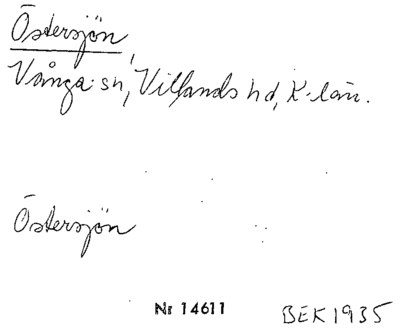 Östersjön
Vånga sn, Villands hd, K-län.
Östersjön
Nr 14611 BEK 1935